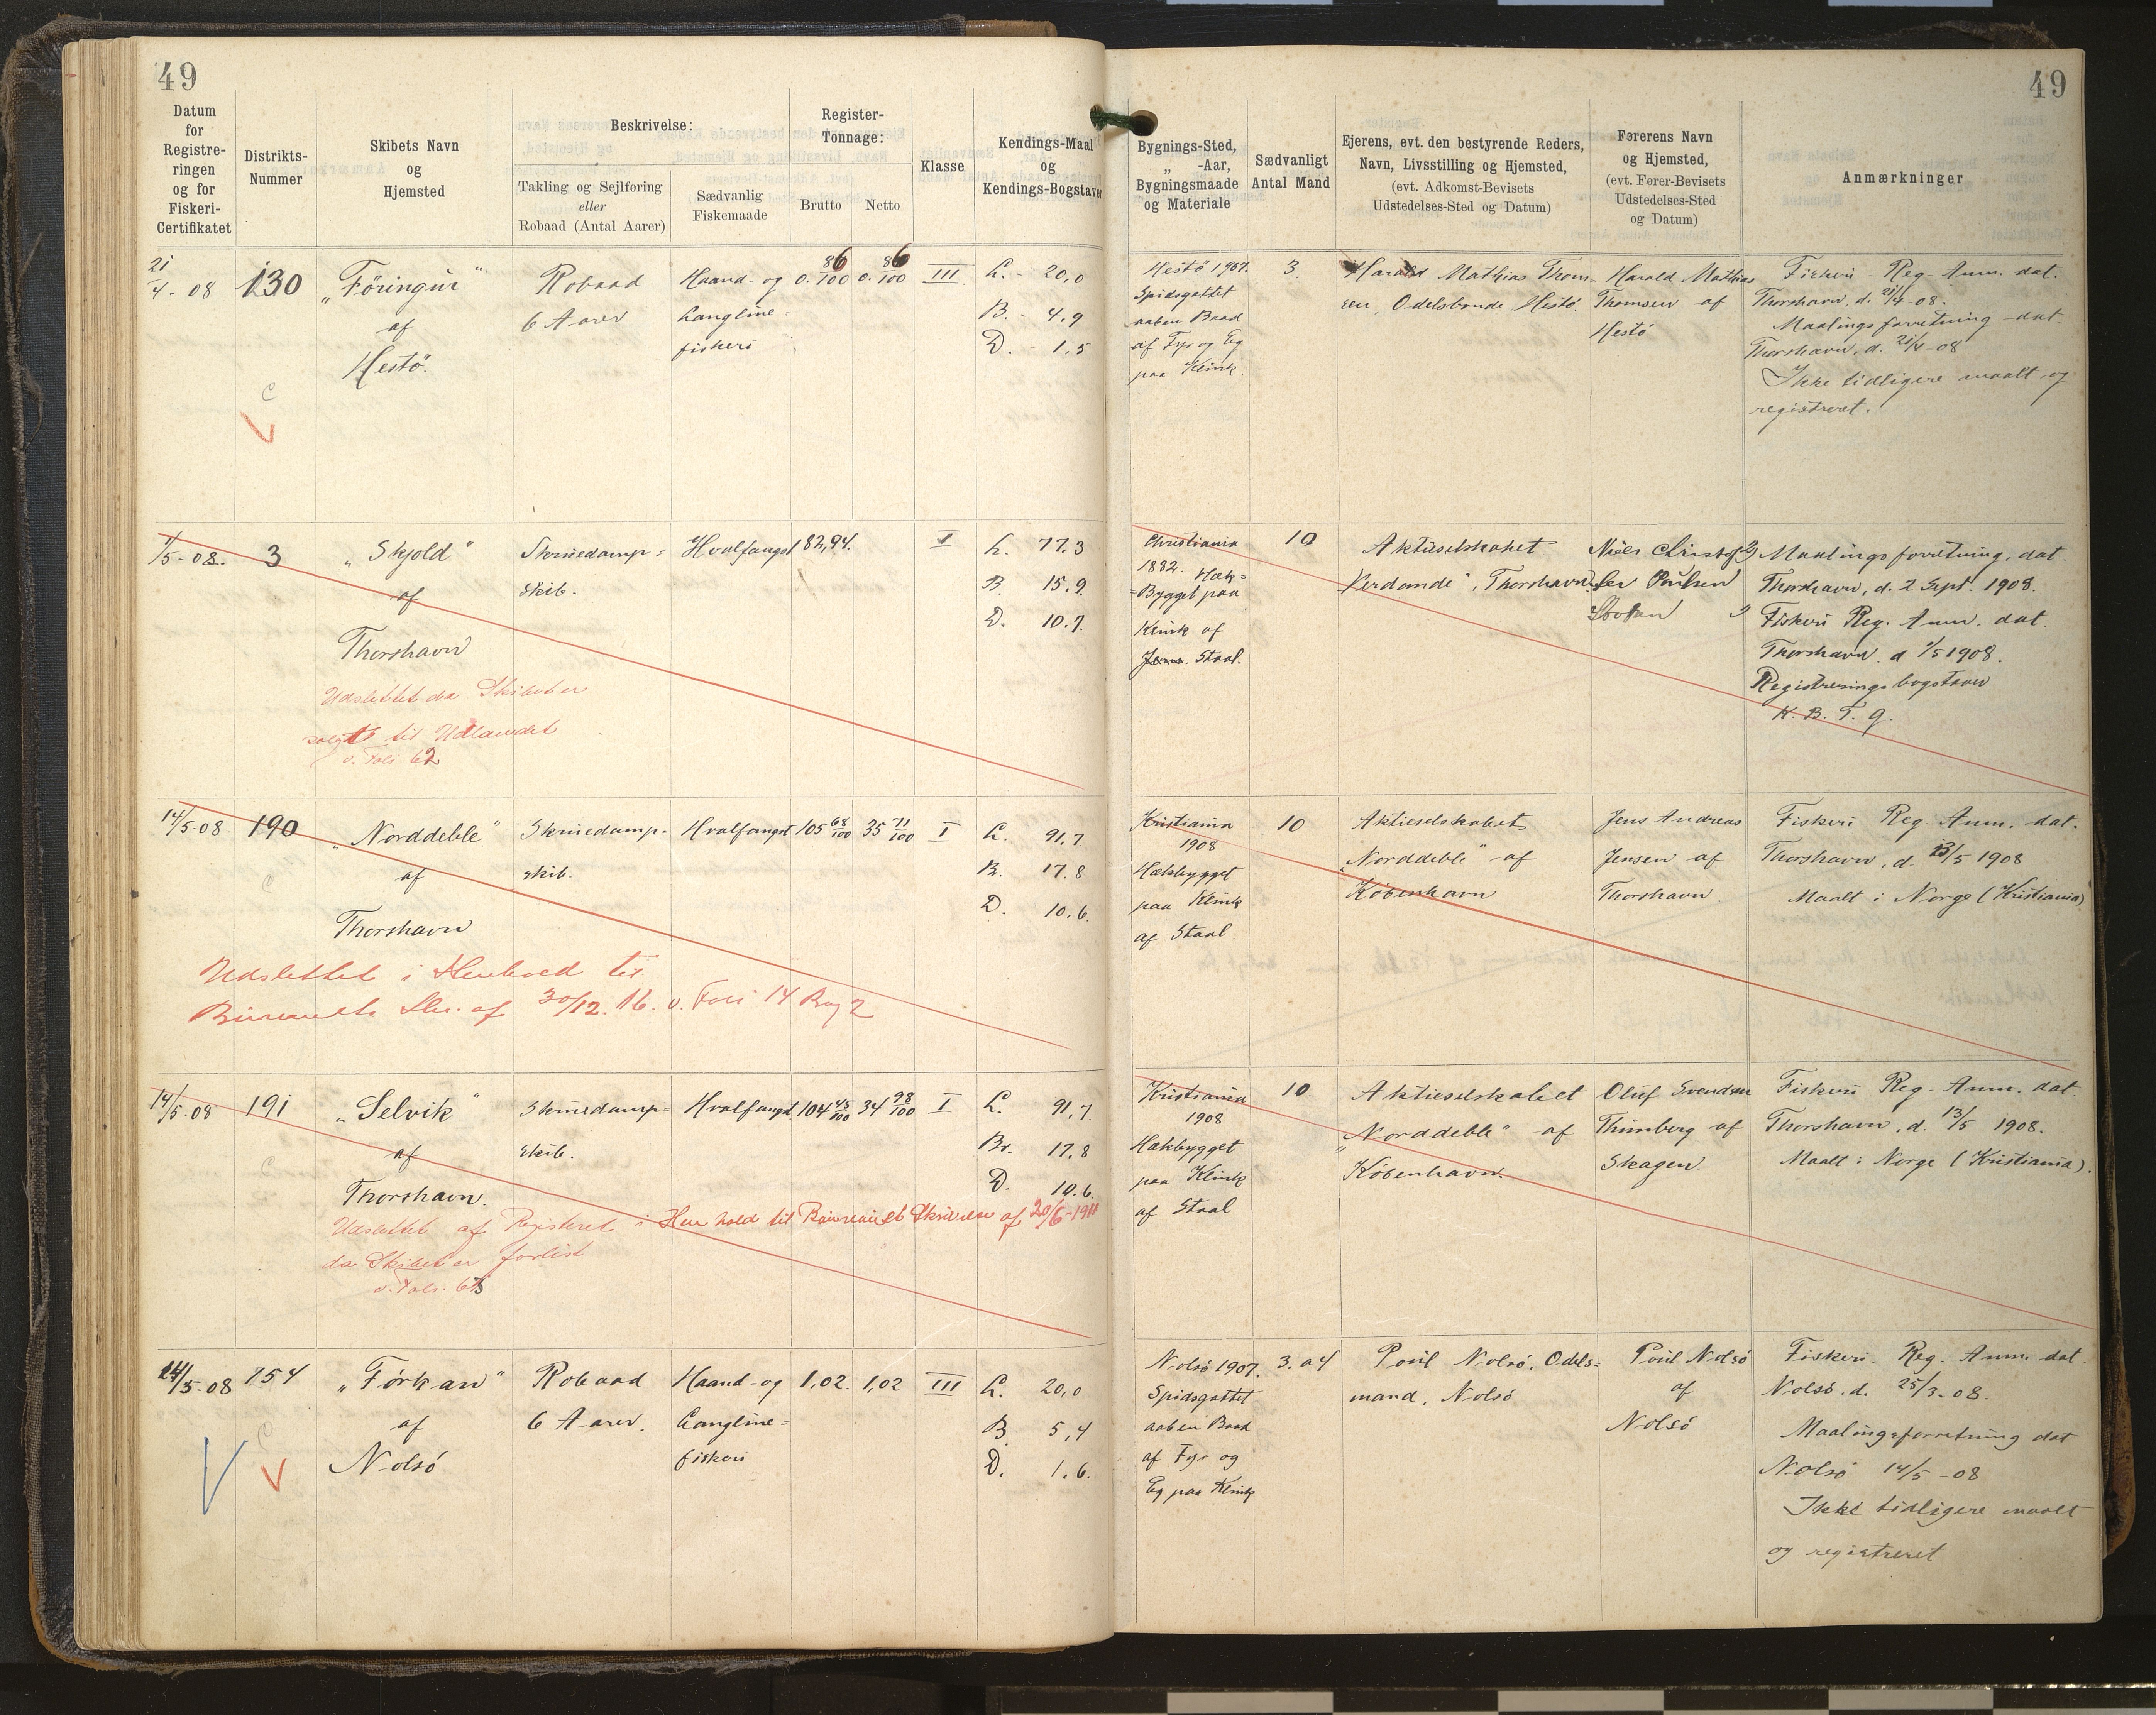 49
49
Datum
for
Registre-
ringen
og for
Fiskeri-
Certifikatet
Distrikts-
Nummer
Skibets Navn
og
Hjemsted
Beskrivelse:
Takling og Sejlføring
eller
Robaad (Antal Aarer)
Sædvanlig
Fiskemaade
Register-
Tonnage:
Brutto
Netto
Klasse
Kendings-Maal
og
Kendings-Bogstaver
Bygnings-Sted,
„ -Aar,
Bygningsmaade
og Materiale
Sædvanligt
Antal Mand
Ejerens, evt. den bestyrende Reders,
Navn, Livsstilling og Hjemsted,
(evt. Adkomst-Bevisets
Udstedelses-Sted og Datum)
Førerens Navn
og Hjemsted,
(evt. Fører-Bevisets
Udstedelses-Sted
og Datum)
Anmærkninger
21/4-08
130
„Föringur"
af
Hestö.
Robaad
6 Aarer
Haand- og
Langline-
fiskeri
0.86/100
0.86/100
III
L. - 20,0
B. - 4,9
D. - 1,5
Hestö 1907.
Spidsgattet
aaben Baad
af Fyr og Eg
paa Klink.
3.
Harald Mathias Thom-
sen, Odelsbonde Hestö.
Harald Mathias
Thomsen af
Hestö
Fiskeri Reg. Anm. dat.
Thorshavn, d. 21/4-08.
Maalingsforretning dat
Thorshavn, d. 21/4-08
Ikke tidligere maalt og
registreret.
1/5-08.
3
„Skjold"
af
Thorshavn
Udslettet da Skibet er
solgt til Udlandet
v. Foli 62
Skruedamp-
skib.
Hvalfangst
182,94.
I
L. 77.3
B. 15.9
D. 10.7.
Christiania
1882. Hæk-
Bygget paa
Klink af
Jern. Staal.
10
Aktieselskabet
Verdande", Thorshavn.
Niels Christof-
fer Poulsen
Maalingsforretning, dat.
Thorshavn, d. 2 Sept. 1908.
Fiskeri Reg. Anm. dat.
Thorshavn. d 1/5 1908.
Registreringsbogstaver
14/5-08
190
„Norddeble"
af
Thorshavn
Udslettet i Henhold til
Bureauets Skr. af 30/12. 16. v. Foli 14 Bog 2
Skruedamp-
skib.
Hvalfangst
105 68/100
35 71/100
I
L. 91,7
B. 17.8
D. 10,6.
Kristiania
1908
Hækbygget
paa Klink
af Staal.
10
Aktieselskabet
„Norddeble" af
København
Jens Andreas
Jensen af
Thorshavn.
Fiskeri Reg. Anm. dat.
Thorshavn, d. 13/5 1908
Maalt i Norge (Kristiania)
14/5-08
191
„Selvik"
af
Thorshavn.
Udslettet af Registeret i Henhold til Bureauets Skrivelse af 20/6-1911
da Skibet er forlist
v. Foli. 63
Skruedamp-
skib.
Hvalfangst
104 45/100
34 98/100
I
L. 91,7.
Br. 17.8
D. 10.6.
Kristiania
1908
Hækbygget
paa Klink
af Staal
10
Aktieselskabet
„Norddeble" af
København.
Oluf Svendsen
Thimberg af
Skagen.
Fiskeri Reg. Anm. dat
Thorshavn, d. 13/5 1908.
Maalt i Norge (Kristiania).
14/5-08
154
„Førkan"
af
Nolsö
Robaad
6 Aarer.
Haand- og
Langline-
fiskeri
1,02.
1,02
III
L. 20,0
B 5,4
D. 1.6.
Nolsö 1907.
Spidsgattet
aaben Baad
af Fyr og
Eg paa Klink
3. a 4
Poul Nolsö, Odels-
mand, Nolsö
Poul Nolsö
af
Nolsö
Fiskeri Reg. Anm. dat
Nolsö. d. 25/3-08.
Maalingsforretning dat
Nolsö 14/5-08
Ikke tidligere maalt
og registreret